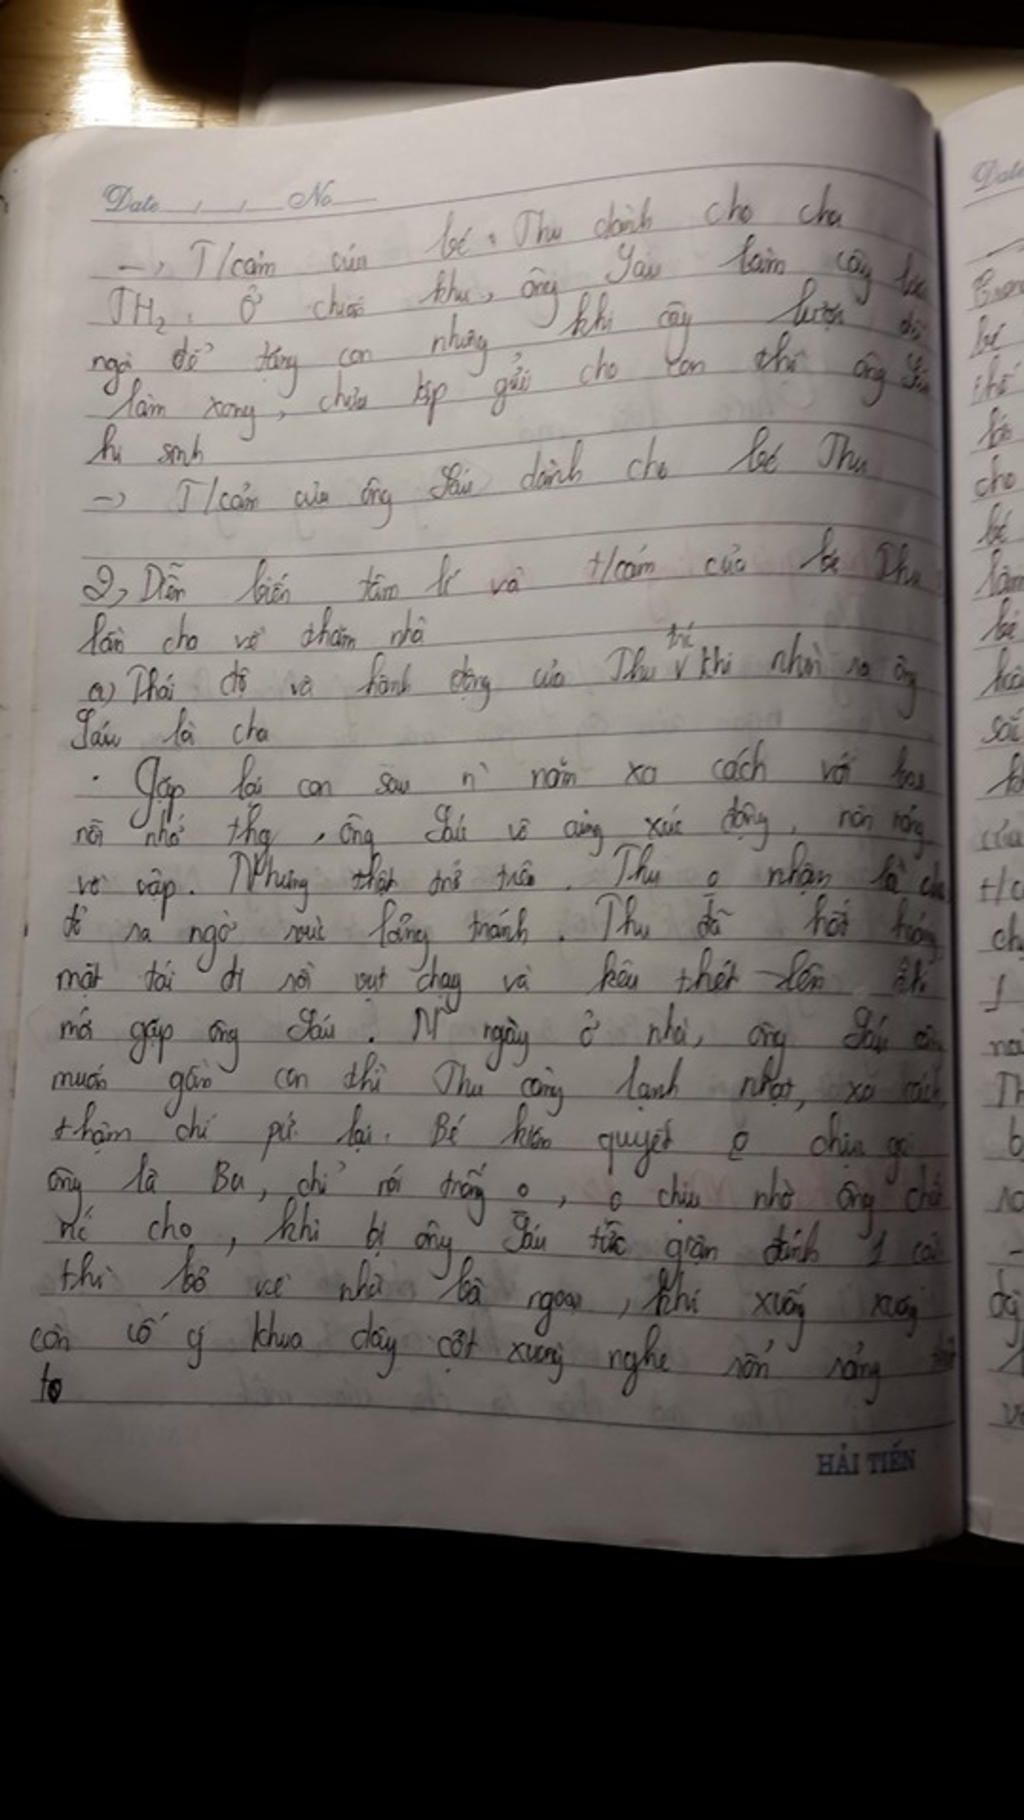 Date / / No
-> T/cảm của bé Thu dành cho cha
TH2. Ở chiến khu, ông Sáu làm cây lược
ngà để tặng con nhưng khi cây lược đã
làm xong, chưa kịp gửi cho con thì ông Sáu
hi sinh
-> T/cảm của ông Sáu dành cho bé Thu
2, Diễn biến tâm lí và t/cảm của bé Thu
lần cha về thăm nhà
a) Thái độ và hành động của Thu trc khi nhận ra ông
Sáu là cha
· Gặp lại con sau n` năm xa cách với bao
nỗi nhớ thg, ông Sáu vô cùng xúc động, nôn nóng
vồ vập. Nhưng thật trớ trêu. Thu o nhận là cha
tỏ ra ngờ vực lảng tránh. Thu đã hốt hoảng
mặt tái đi rồi vụt chạy và kêu thét lên khi
mới gặp ông Sáu. N~ ngày ở nhà, ông Sáu càng
muốn gần con thì Thu càng lạnh nhạt, xa cách,
thậm chí pứ lại. Bé kiên quyết o chịu gọi
ông là Ba, chỉ nói trống o, o chịu nhờ ông chắt
nc cho, khi bị ông Sáu tức giận đánh 1 cái
thì bỏ về nhà bà ngoại, khi xuống xuồng
còn cố ý khua dây cột xuồng nghe rổn rảng thật
to
HẢI TIẾN
Date
bé
cho
bé
làm
bé
của
t/c